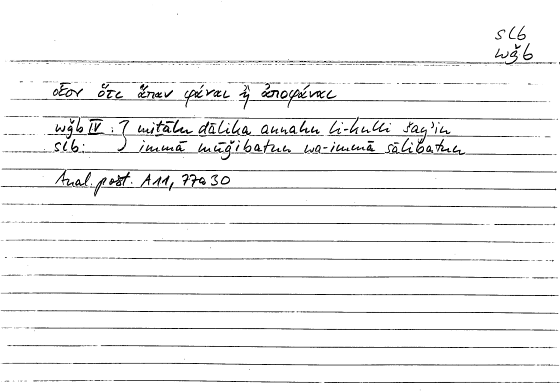 slb
wǧb
οἷον ὅτι ἅπαν φάναι ἢ ἀποφάναι
wǧb IV : } miṯālu ḏālika annahu li-kulli šayʾin
slb: immā mūǧibatun wa-immā sālibatun
Anal. post. A11, 77a30